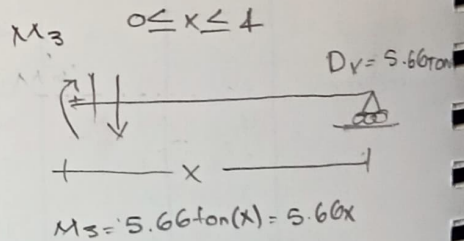 M3 0≤x≤4
Dv= 5.66ton
x
M3= 5.66ton(x)= 5.66x